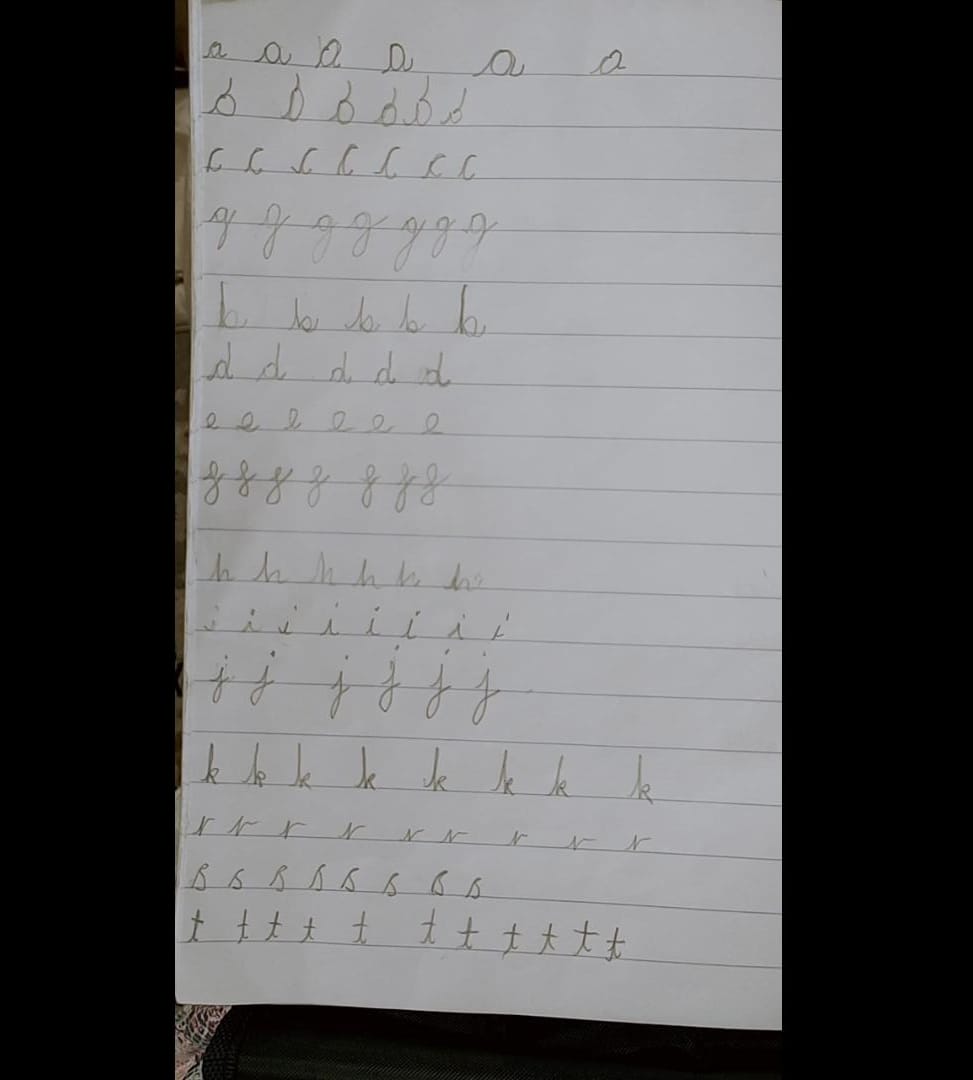 a a a a a a
b b b b b b
c c c c c c c
g g g g g g g
b b b b b
d d d d d
e e e e e e
g g g g g g g
h h h h h h
i i i i i i i i
j j j j j j
k k k k k k k k
r r r r r r r r r
s s s s s s s s
t t t t t t t t t t t